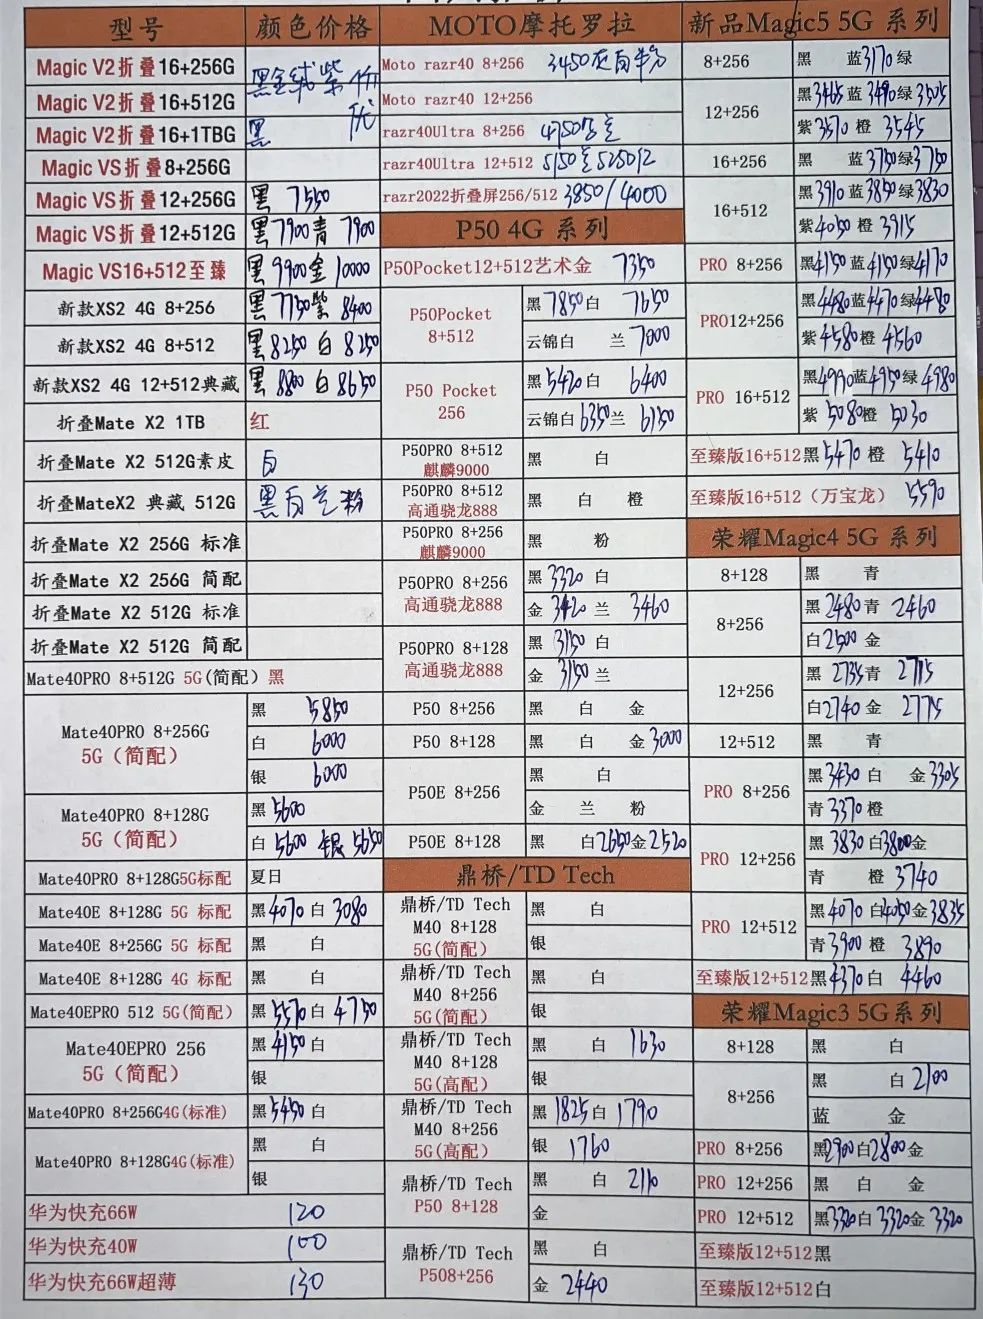 型号 颜色价格 MOTO摩托罗拉 新品Magic5 5G 系列
Magic V2折叠16+256G 黑金绒紫 价优
Magic V2折叠16+512G
Magic V2折叠16+1TBG 黑
Magic VS折叠8+256G
Magic VS折叠12+256G 黑 7550
Magic VS折叠12+512G 黑7900青 7900
Magic VS16+512至臻 黑 9900金10000
新款XS2 4G 8+256 黑 7750紫 8400
新款XS2 4G 8+512 黑8250 白 8250
新款XS2 4G 12+512典藏 黑 8800 白8650
折叠Mate X2 1TB 红
折叠Mate X2 512G素皮 白
折叠MateX2 典藏 512G 黑白兰粉
折叠Mate X2 256G 标准
折叠Mate X2 256G 简配
折叠Mate X2 512G 标准
折叠Mate X2 512G 简配
Mate40PRO 8+512G 5G(简配) 黑
Mate40PRO 8+256G
5G（简配）
黑 5850
白 6000
银 6000
Mate40PRO 8+128G
5G（简配）
黑5600
白 5600 银 5650
Mate40PRO 8+128G5G标配 夏日
Mate40E 8+128G 5G 标配 黑4070白 3080
Mate40E 8+256G 5G 标配 黑 白
Mate40E 8+128G 4G 标配 黑 白
Mate40EPRO 512 5G(简配) 黑5570白 4750
Mate40EPRO 256
5G（简配）
黑4150白
银
Mate40PRO 8+256G4G(标准) 黑5450白
Mate40PRO 8+128G4G(标准)
黑 白
银
华为快充66W 120
华为快充40W 100
华为快充66W超薄 130
Moto razr40 8+256 3450灰白
Moto razr40 12+256
razr40Ultra 8+256 4750
razr40Ultra 12+512 5150 5250红
razr2022折叠屏256/512 3850/4000
P50 4G 系列
P50Pocket12+512艺术金 7350
P50Pocket
8+512
黑7850白 7650
云锦白 兰 7000
P50 Pocket
256
黑5420白 6400
云锦白6350兰 6150
P50PRO 8+512
麒麟9000
黑 白
P50PRO 8+512
高通骁龙888
黑 白 橙
P50PRO 8+256
麒麟9000
黑 粉
P50PRO 8+256
高通骁龙888
黑3320白
金 3420兰 3460
P50PRO 8+128
高通骁龙888
黑 3150白
金 3150兰
P50 8+256 黑 白 金
P50 8+128 黑 白 金3000
P50E 8+256
黑 白
金 兰 粉
P50E 8+128 黑 白2650金2520
鼎桥/TD Tech
鼎桥/TD Tech
M40 8+128
5G(简配)
黑 白
银
鼎桥/TD Tech
M40 8+256
5G(简配)
黑 白
银
鼎桥/TD Tech
M40 8+128
5G(高配)
黑 白 1630
银
鼎桥/TD Tech
M40 8+256
5G(高配)
黑 1825白 1790
银 1760
鼎桥/TD Tech
P50 8+128
黑 白 2110
金
鼎桥/TD Tech
P508+256
黑 白
金 2440
8+256 黑 蓝3170绿
12+256
黑3465蓝 3490绿3505
紫3570 橙 3545
16+256 黑 蓝3750绿3750
16+512
黑3910蓝3850绿3830
紫4050橙 3915
PRO 8+256 黑4150蓝4150绿4170
PRO12+256
黑4480蓝4470绿4480
紫4580橙 4560
PRO 16+512
黑4990蓝4950绿 4980
紫 5080橙 5030
至臻版16+512黑5470 橙 5410
至臻版16+512（万宝龙） 5590
荣耀Magic4 5G 系列
8+128 黑 青
8+256
黑 2480青 2460
白2500 金
12+256
黑 2735青 2775
白2740金 2775
12+512 黑 青
PRO 8+256
黑3430 白 金3305
青3370橙
PRO 12+256
黑 3830 白3800金
青 橙 3740
PRO 12+512
黑4070白4050金3835
青3900橙 3890
至臻版12+512黑4370白 4460
荣耀Magic3 5G系列
8+128 黑 白
8+256
黑 白2100
蓝 金
PRO 8+256 黑2900白2800金
PRO 12+256 黑 白 金
PRO 12+512 黑3320白 3320金 3320
至臻版12+512黑
至臻版12+512白